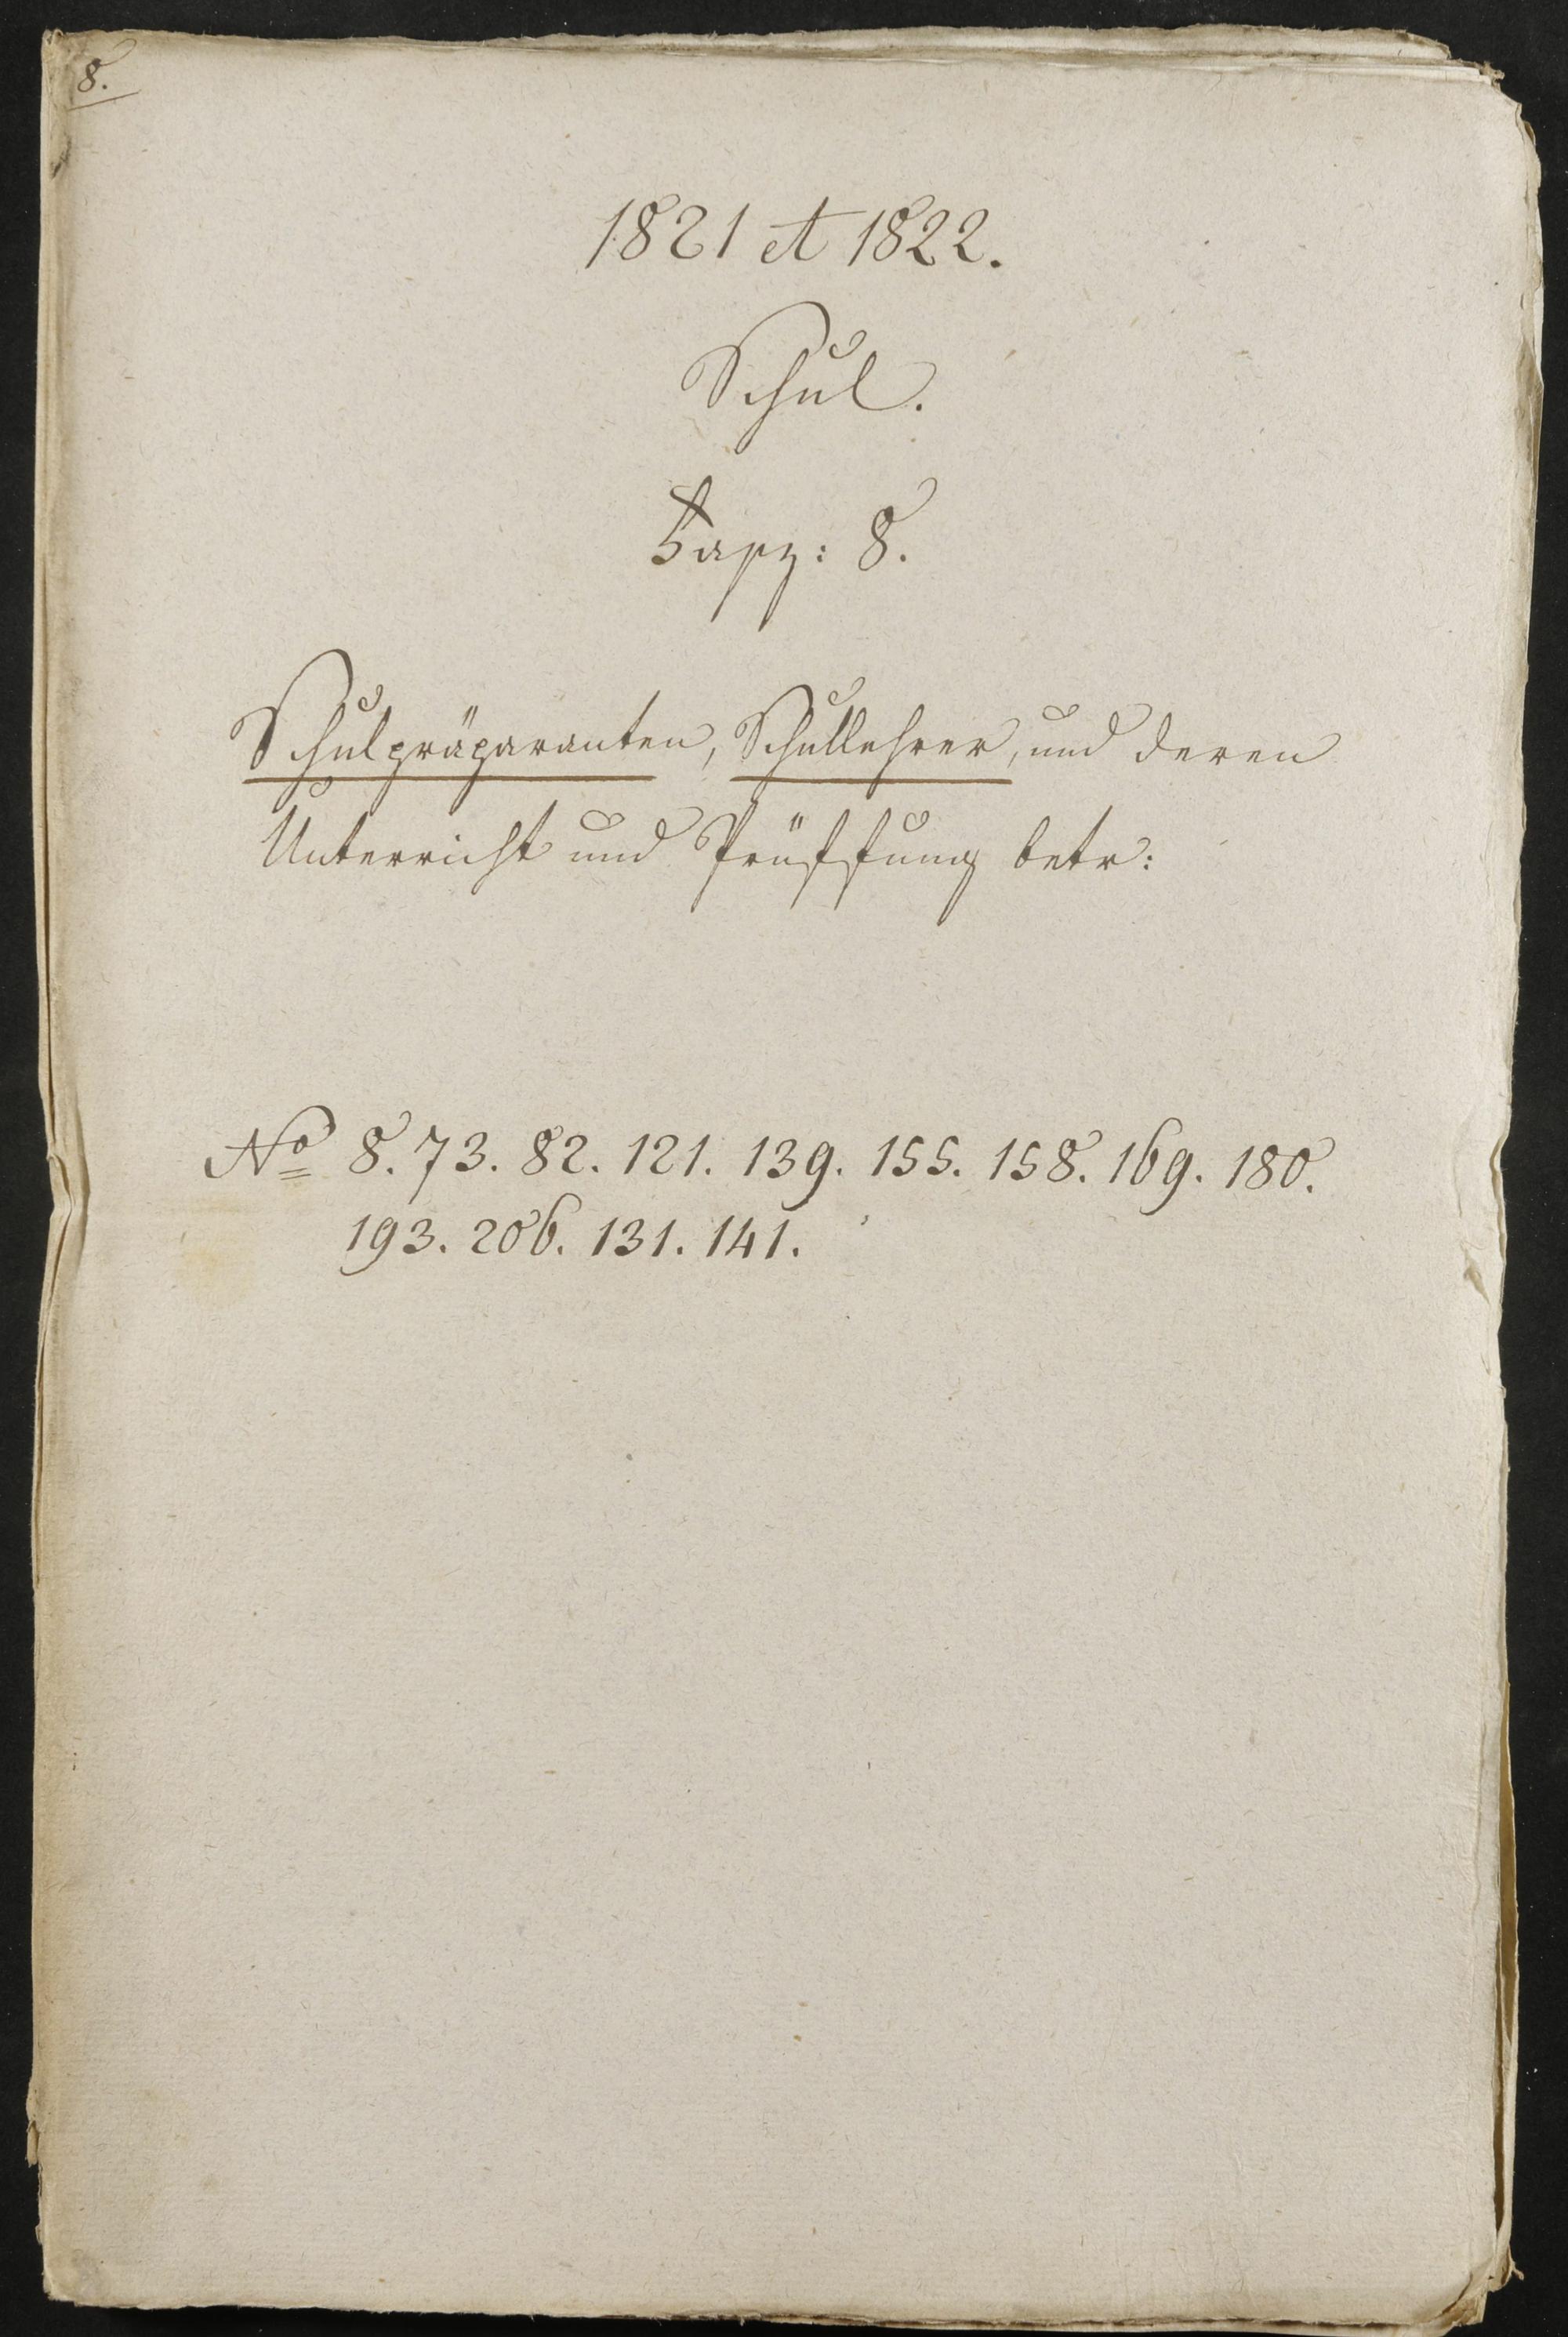 8.
1821 et 1822.
Schul.
Fasz: 8.
Schulpräparanten, Schullehrer, und deren
Unterricht und Prüffung betr:
No 8. 73. 82. 121. 139. 155. 158. 169. 180.
193. 206. 131. 141.